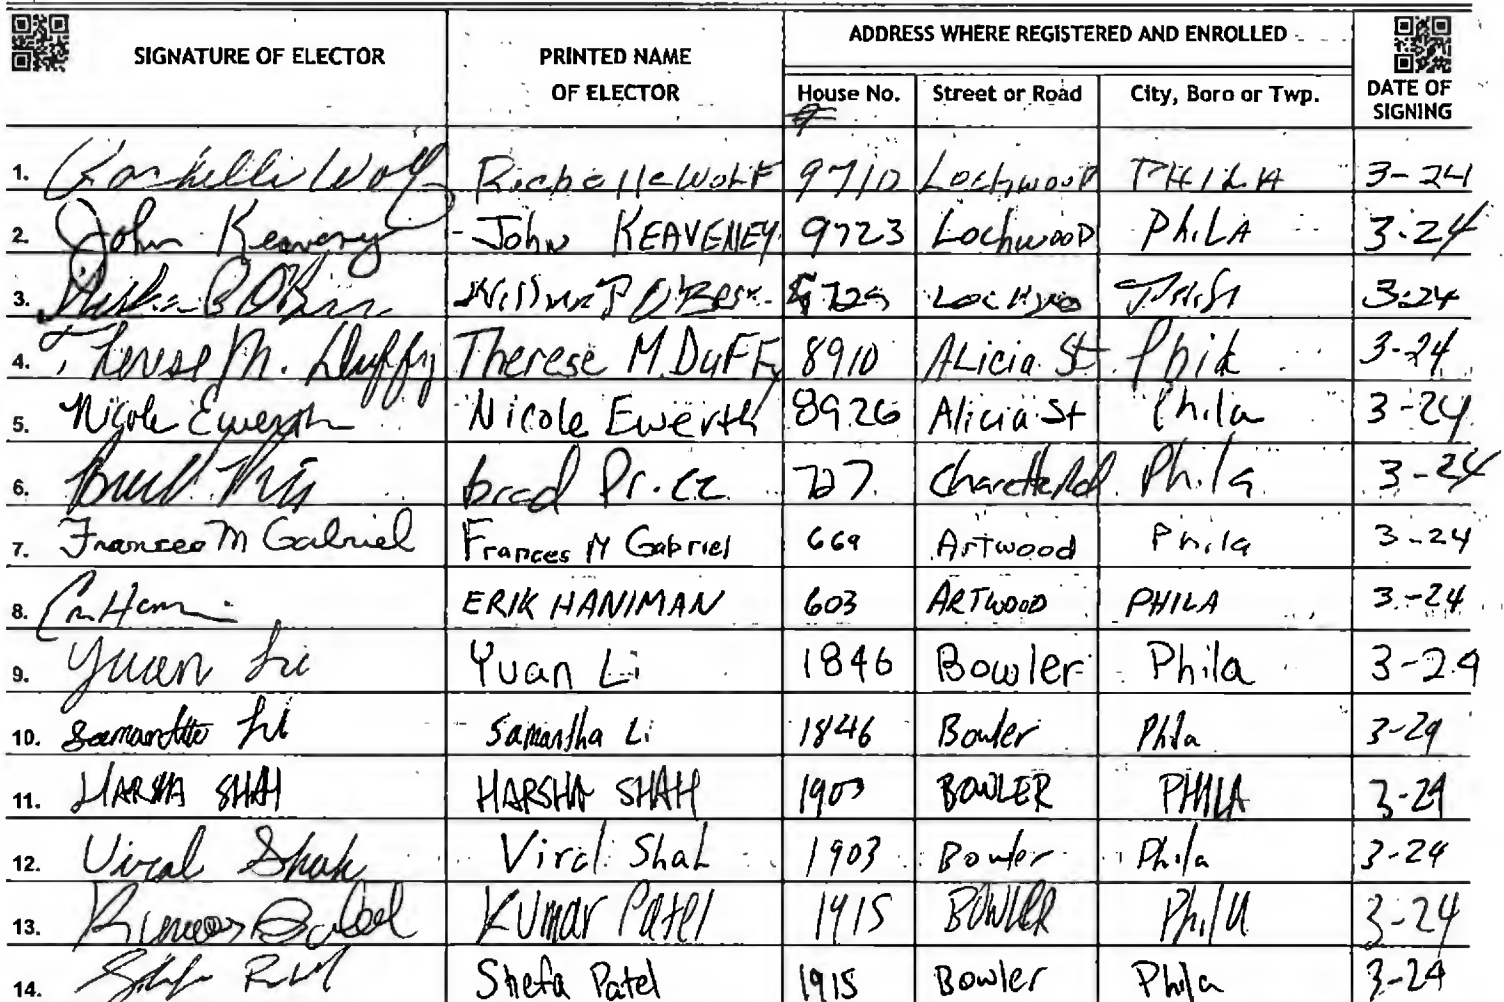 SIGNATURE OF ELECTOR PRINTED NAME OF ELECTOR ADDRESS WHERE REGISTERED AND ENROLLED DATE OF SIGNING
House No. Street or Road City, Boro or Twp.
1. Wolf 9710 Lochwood PHILA 3-24
2. John Keaveney John KEAVENEY 9723 LochwooD PhiLA 3-24
3. 3-24
4. Therese M. Duffy Therese M DuFFy 8910 ALicia St Phila 3-24
5. Nicole Ewerth Nicole Ewerth 8926 Alicia St Phila 3-24
6. brad Price 727 Charette Rd Phila 3-24
7. Frances M Gabriel Frances M Gabriel 669 Artwood Phila 3-24
8. ERIK HANIMAN 603 ARTWOOD PHILA 3-24
9. Yuan Li Yuan Li 1846 Bowler Phila 3-24
10. Samantha Li Samantha Li 1846 Bowler Phila 3-24
11. HARSHA SHAH HARSHA SHAH 1903 BOWLER PHILA 3-24
12. Viral Shah Viral Shah 1903 Bowler Phila 3-24
13. Kumar Patel Kumar Patel 1915 BOWLER Phila 3-24
14. Shefa Patel 1915 Bowler Phila 3-24